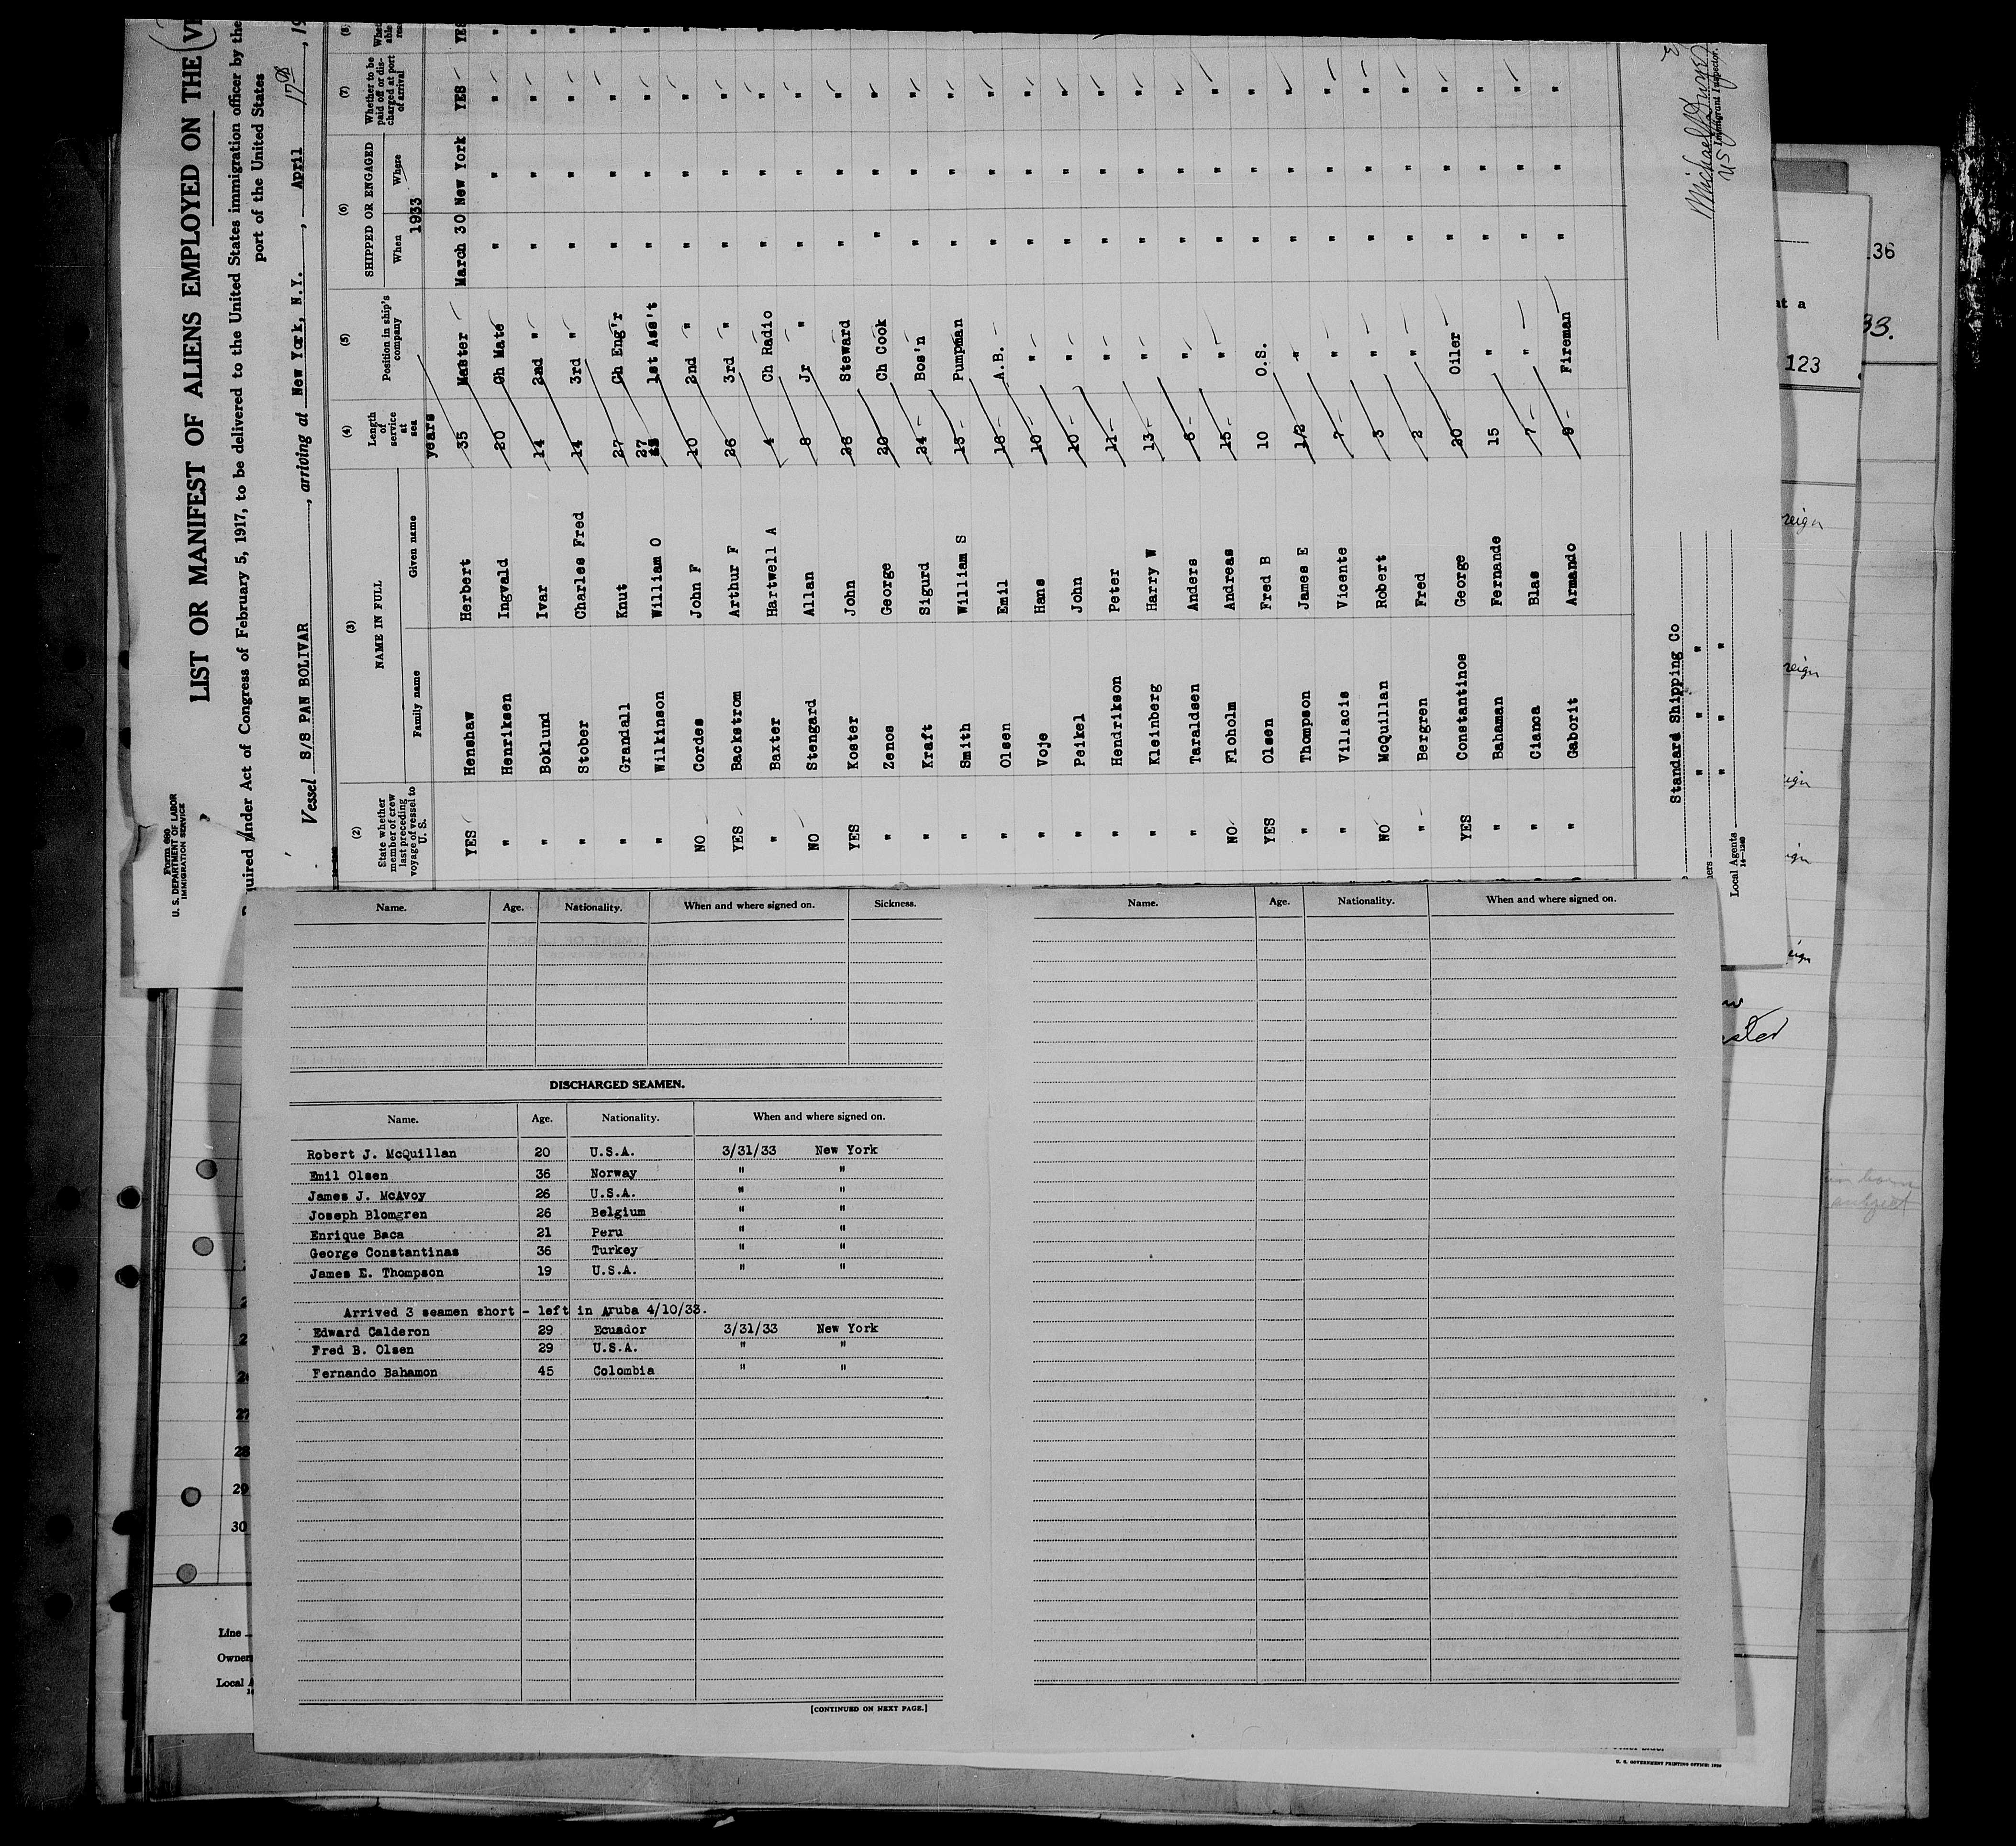 Form 689
U. S. DEPARTMENT OF LABOR
IMMIGRATION SERVICE
LIST OR MANIFEST OF ALIENS EMPLOYED ON THE
quired under Act of Congress of February 5, 1917, to be delivered to the United States immigration officer by the
port of the United States
Vessel S/S PAN BOLIVAR, arriving at New York, N.Y., April 17th, 19
(2) (3) (4) (5) (6) (7) (8)
State whether member of crew last preceding voyage of vessel to U. S. NAME IN FULL Length of service at sea Position in ship's company SHIPPED OR ENGAGED Whether to be paid off or discharged at port of arrival
Family name Given name When Where
years 1933
YES Henshaw Herbert 35 Master March 30 New York YES YES
" Henriksen Ingvald 20 Ch Mate " " " "
" Boklund Ivar 14 2nd " " " " "
" Stober Charles Fred 14 3rd " " " " "
" Grandall Knut 27 Ch Eng'r " " " "
" Wilkinson William O 27 1st Ass't " " " "
NO Cordes John F 10 2nd " " " " "
YES Backstrom Arthur F 26 3rd " " " " "
" Baxter Hartwell A 4 Ch Radio " " " "
NO Stengard Allan 8 Jr " " " " "
YES Koster John 26 Steward " " " "
" Zenos George 20 Ch Cook " " " "
" Kraft Sigurd 24 Bos'n " " " "
" Smith William S 13 Pumpman " " " "
" Olsen Emil 16 A.B. " " " "
" Voje Hans 10 " " " " "
" Peikel John 10 " " " " "
" Hendrikson Peter 11 " " " " "
" Kleinberg Harry W 13 " " " " "
" Taraldsen Anders 6 " " " " "
NO Floholm Andreas 15 " " " " "
YES Olsen Fred B 10 O.S. " " " "
" Thompson James E 1/2 " " " " "
" Villacis Vicente 7 " " " " "
NO McQuillan Robert 3 " " " " "
" Bergren Fred 2 " " " " "
YES Constantinos George 20 Oiler " " " "
" Bahaman Fernande 15 " " " " "
" Cianca Blas 7 " " " " "
" Gaborit Armando 9 Fireman " " " "
Standard Shipping Co
" " "
" " "
Local Agents
Michael J. Dwyer
US Immigrant Inspector.
Name. Age. Nationality. When and where signed on. Sickness.
DISCHARGED SEAMEN.
Name. Age. Nationality. When and where signed on.
Robert J. McQuillan 20 U.S.A. 3/31/33 New York
Emil Olsen 36 Norway " "
James J. McAvoy 26 U.S.A. " "
Joseph Blomgren 26 Belgium " "
Enrique Baca 21 Peru " "
George Constantinas 36 Turkey " "
James E. Thompson 19 U.S.A. " "
Arrived 3 seamen short - left in Aruba 4/10/33.
Edward Calderon 29 Ecuador 3/31/33 New York
Fred B. Olsen 29 U.S.A. " "
Fernando Bahamon 45 Colombia " "
[CONTINUED ON NEXT PAGE.]
Name. Age. Nationality. When and where signed on.
27
28
29
30
Line
Owner
Local
36
at a
33.
123
U. S. GOVERNMENT PRINTING OFFICE: 1930